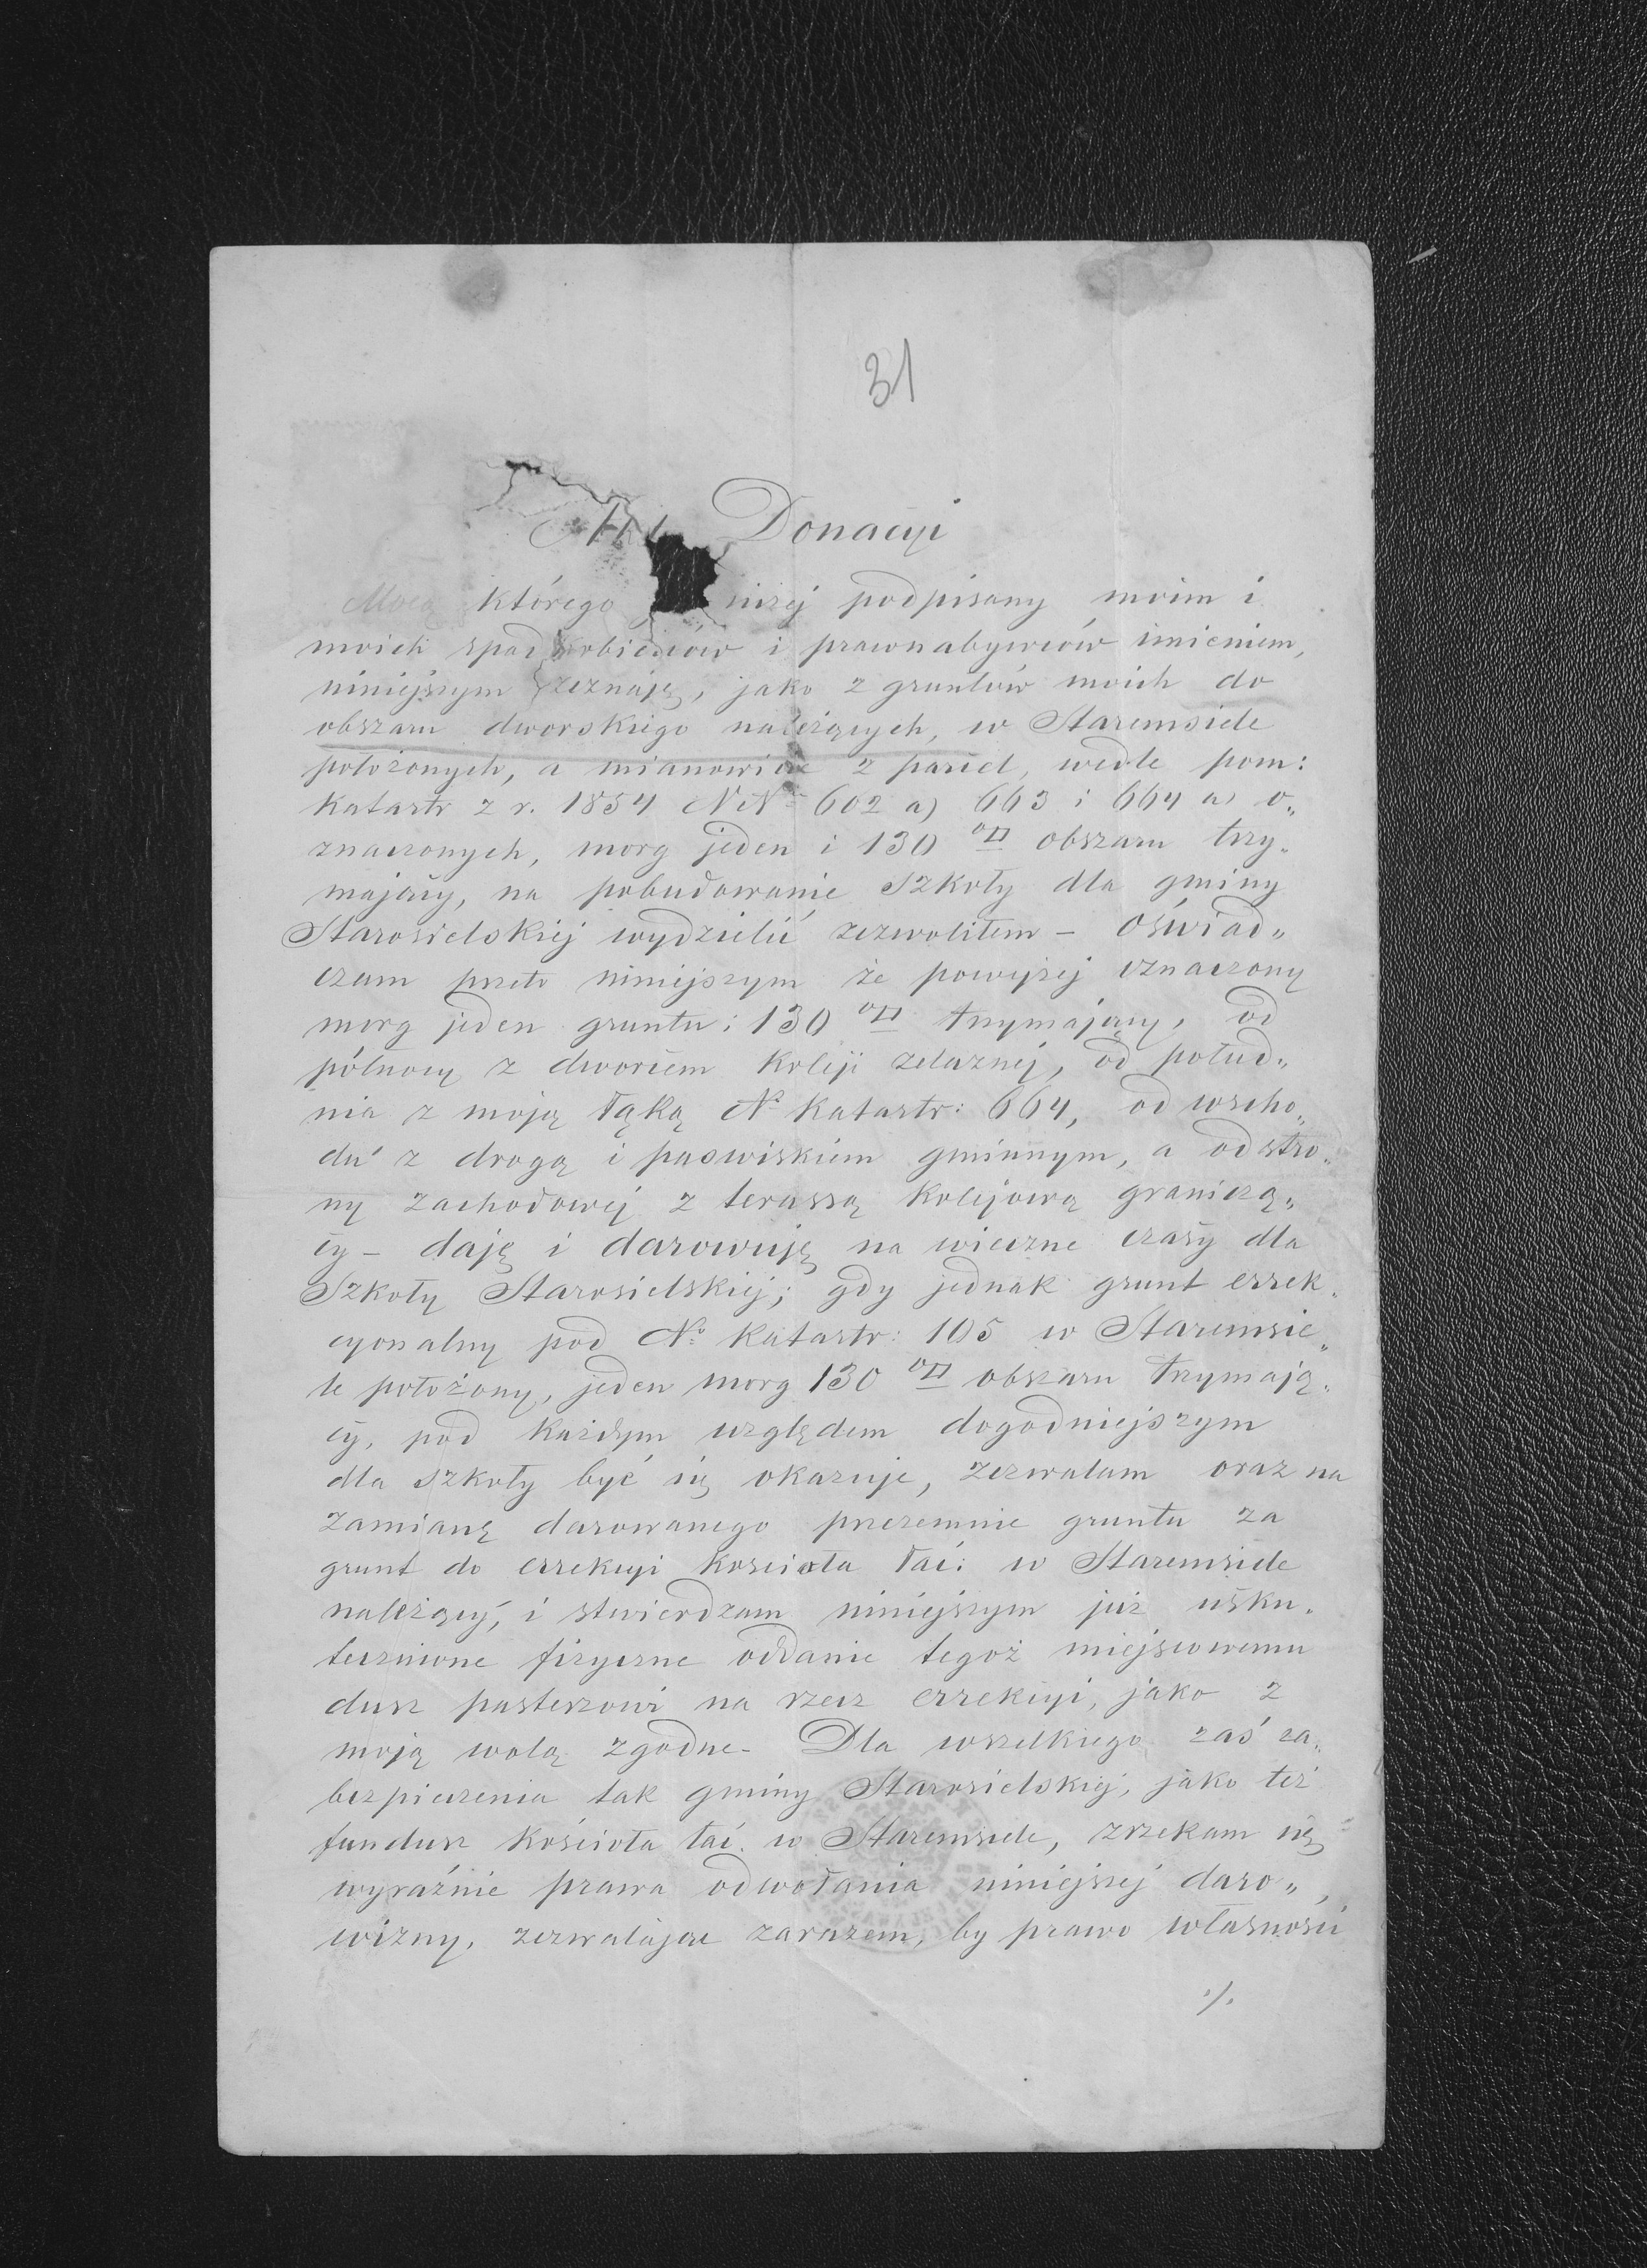 31
Akt Donacyi
Mocą którego niżej podpisany moim i
moich spadkobierców i prawonabywców imieniem,
niniejszym zeznaję, jako z gruntów moich do
obszaru dworskiego należących, w Staremsiele
położonych, a mianowicie z parcel, wedle pom:
Katastr z r. 1854 NNo 602 a) 663 i 664 a) o„
znaczonych, morg jeden i 130 □ obszaru trzy„
mający, na pobudowanie Szkoły dla gminy
Starosielskiej wydzielić zezwoliłem – oświad„
czam przeto niniejszym że powyżej oznaczony
morg jeden gruntu i 130 □ trzymający, od
północy z dworcem Koleji żelaznej, od połud„
nia z moją łąką No Katastr: 664, od wscho„
du z drogą i paswiskiem gminnym, a od stro„
ny zachodowej z terassą Kolejową graniczą„
cy – daję i darowuję na wieczne czasy dla
Szkoły Starosielskiej; gdy jednak grunt errek„
cyonalny pod No Katastr: 105 w Staremsie„
le położony, jeden morg 130 □ obszaru trzymają„
cy, pod każdym względem dogodniejszym
dla szkoły być się okazuje, zezwalam oraz na
zamianę darowanego przezemnie gruntu za
grunt do errekcyi Kościoła łać: w Staremsiele
należący, i stwierdzam niniejszym już usku„
tecznione fizyczne oddanie tegoż miejscowemu
dusz pasterzowi na rzecz errekcyi, jako z
moją wolą zgodne – Dla wszelkiego zaś za„
bezpieczenia tak gminy Starosielskiej, jako też
fundusz Kościoła łać. w Staremsiele, zrzekam się
wyraźnie prawa odwołania niniejszej daro„
wizny, zezwalając zarazem, by prawo własności
./.